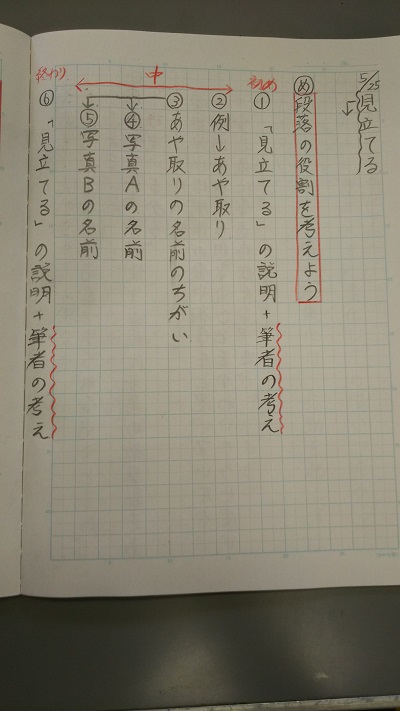 5/25 見立てる
め 段落の役割を考えよう
初め
① 「見立てる」の説明+筆者の考え
中
② 例→あや取り
③ あや取りの名前のちがい
④ 写真Aの名前
⑤ 写真Bの名前
終わり
⑥ 「見立てる」の説明+筆者の考え